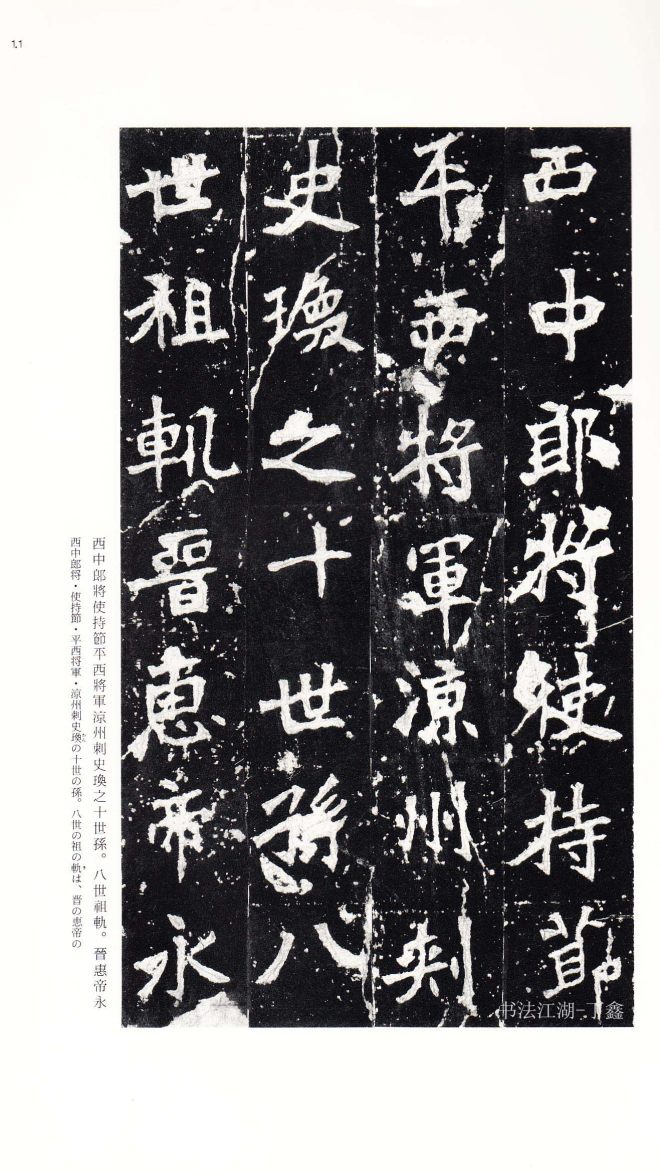 11
西中郎將使持節
平西將軍涼州刺
史瓊之十世孫八
世祖軌晉惠帝永
西中郎將使持節平西將軍涼州刺史瓊之十世孫。八世祖軌。晉惠帝永
西中郎将・使持節・平西将軍・涼州刺史瓊の十世の孫。八世の祖の軌は、晋の恵帝の
书法江湖-丁鑫